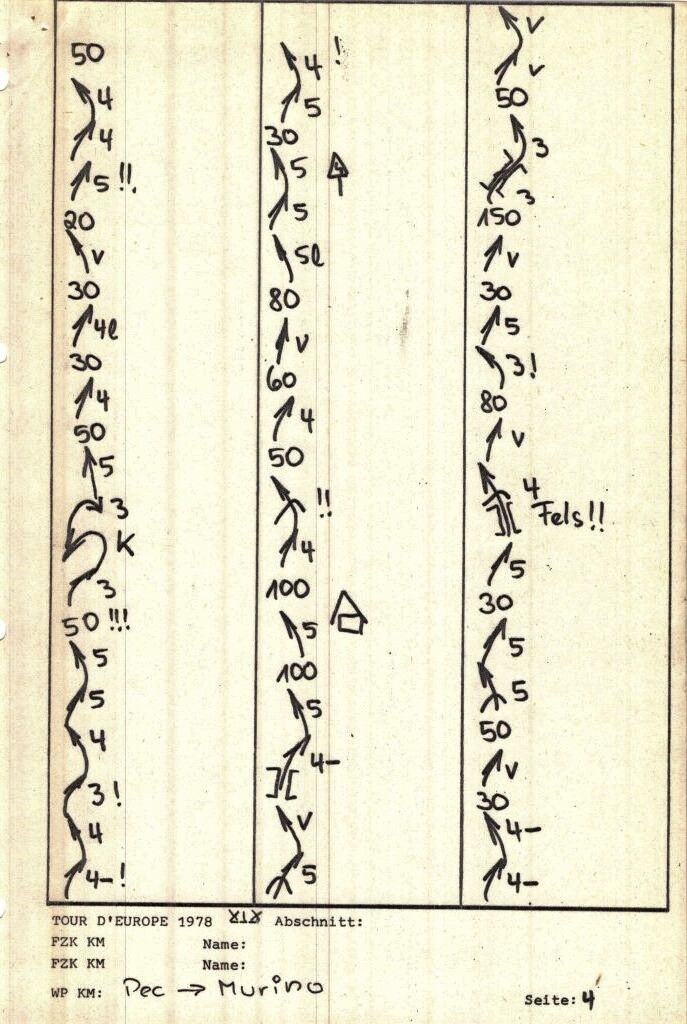 50
4
4
5 !!.
20
v
30
4l
30
4
50
5
3
K
3
50 !!!
5
5
4
3 !
4
4- !
4 !
5
30
5
5
5l
80
v
60
4
50
!!
4
100
5
100
5
4-
v
5
v
v
50
3
3
150
v
30
5
3!
80
v
4
Fels!!
5
30
5
5
50
v
30
4-
4-
TOUR D'EUROPE 1978 XIX Abschnitt:
FZK KM Name:
FZK KM Name:
WP KM: Pec → Murino
Seite: 4